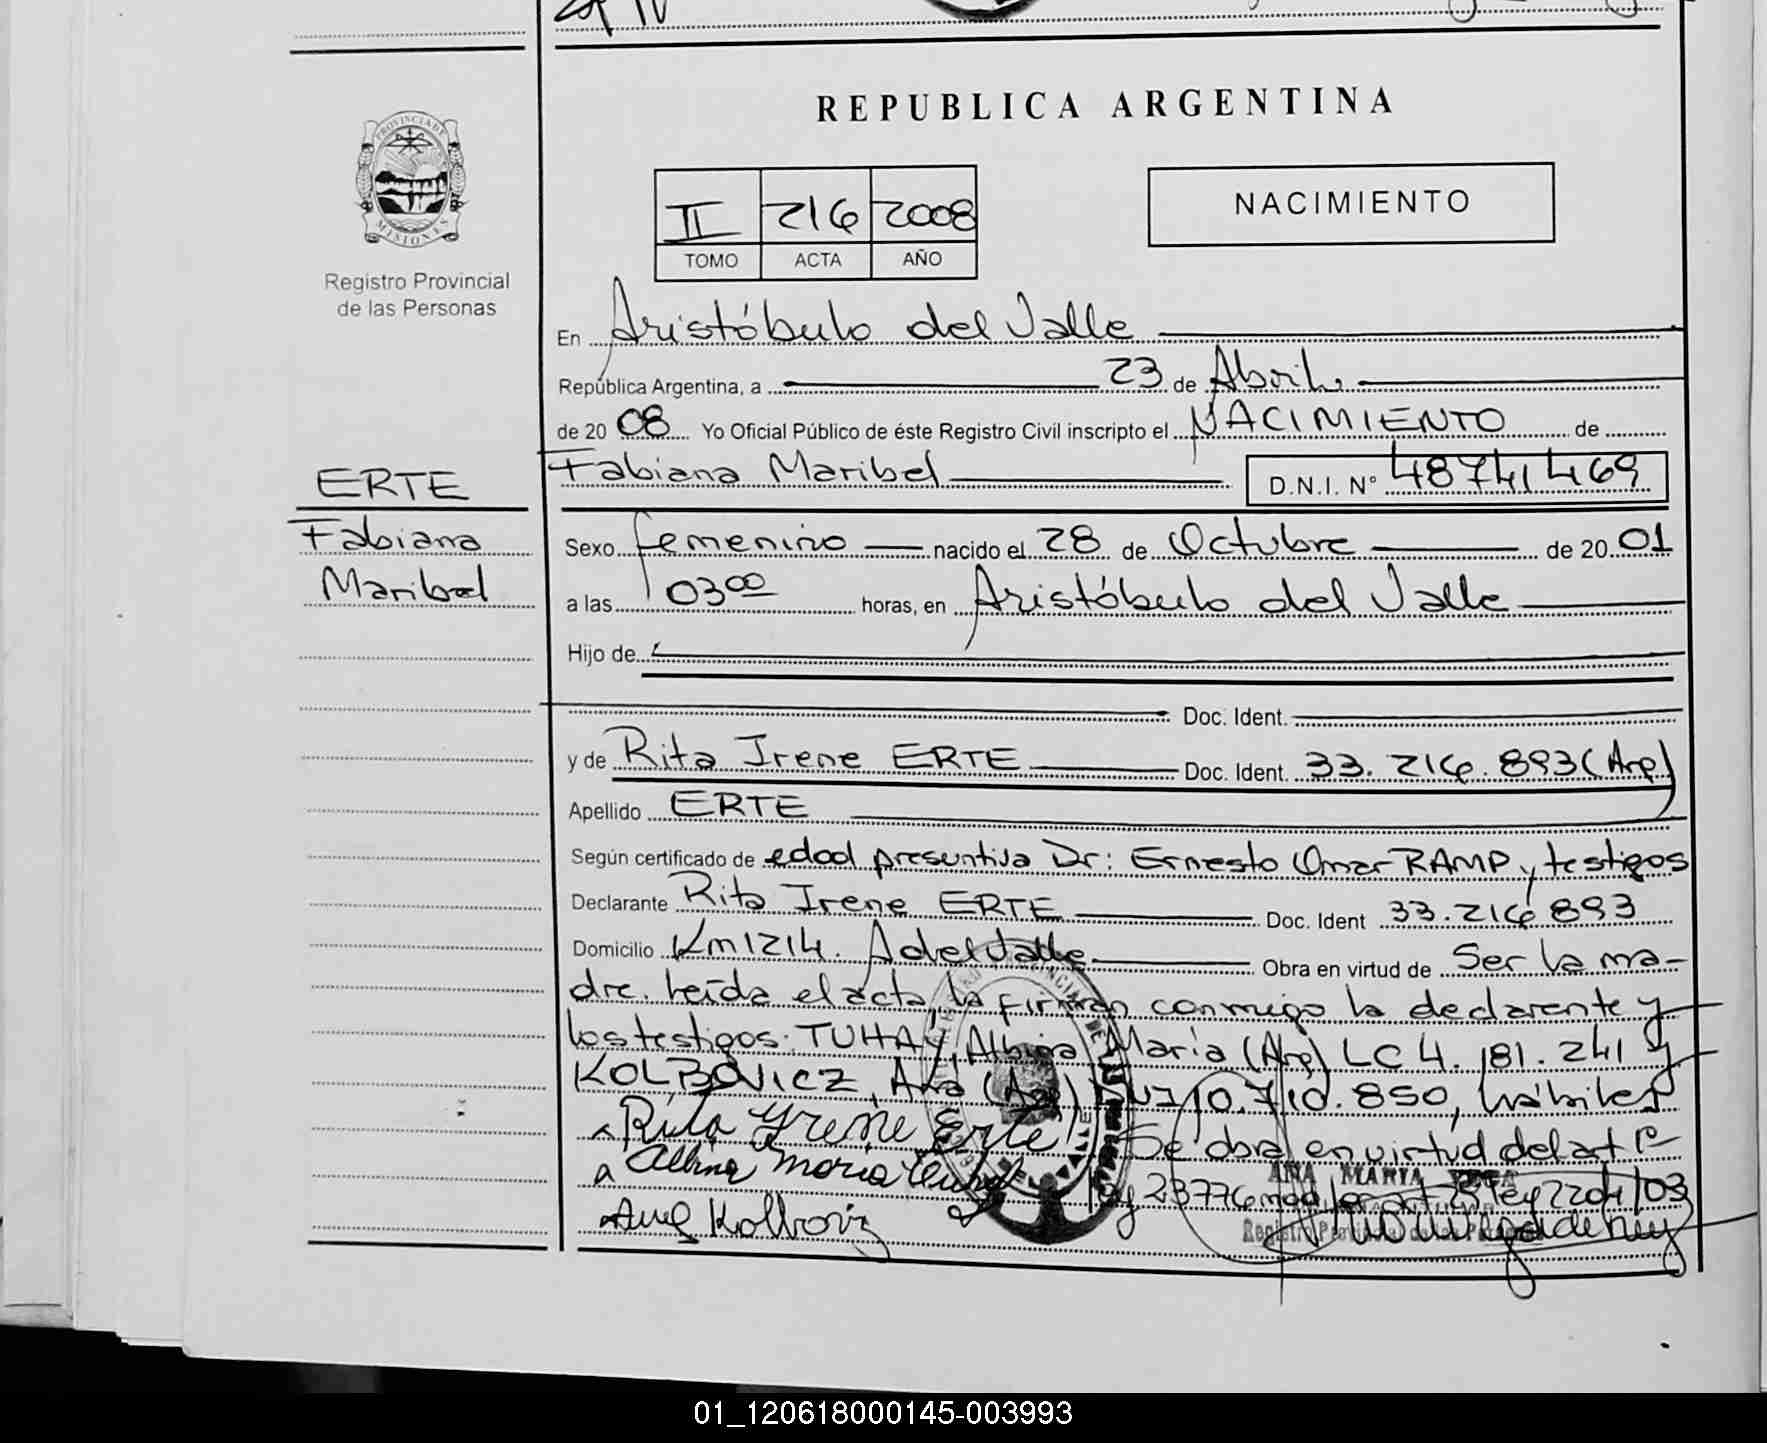 REPUBLICA ARGENTINA
PROVINCIA DE
MISIONES
Registro Provincial
de las Personas
II 216 2008
TOMO ACTA AÑO
NACIMIENTO
En Aristóbulo del Valle
República Argentina, a 23 de Abril
de 20 08 Yo Oficial Público de éste Registro Civil inscripto el NACIMIENTO de
Fabiana Maribel D.N.I. N° 48741469
ERTE
Fabiana
Maribel
Sexo femenino nacido el 28 de Octubre de 20 01
a las 03 00 horas, en Aristóbulo del Valle
Hijo de
Doc. Ident.
y de Rita Irene ERTE Doc. Ident. 33.216.893 (Arg)
Apellido ERTE
Según certificado de edad presuntiva Dr: Ernesto Omar RAMP y testigos
Declarante Rita Irene ERTE Doc. Ident 33.216.893
Domicilio Km 1214. A del Valle Obra en virtud de Ser la ma-
dre. leída el acta, la firman conmigo la declarente y
los testigos: TUHAY, Albina María (Arg) LC 4.181.241 y
KOLBOVICZ, Ana (Arg) 10.710.850, hábiles
Rita Yrene Erte Se obra en virtud del art 1°
Albina Maria ley 23776 art ley 22041/03
Ana Kolboviz
ANA MARIA
Registro Provincial de las Personas
01_120618000145-003993